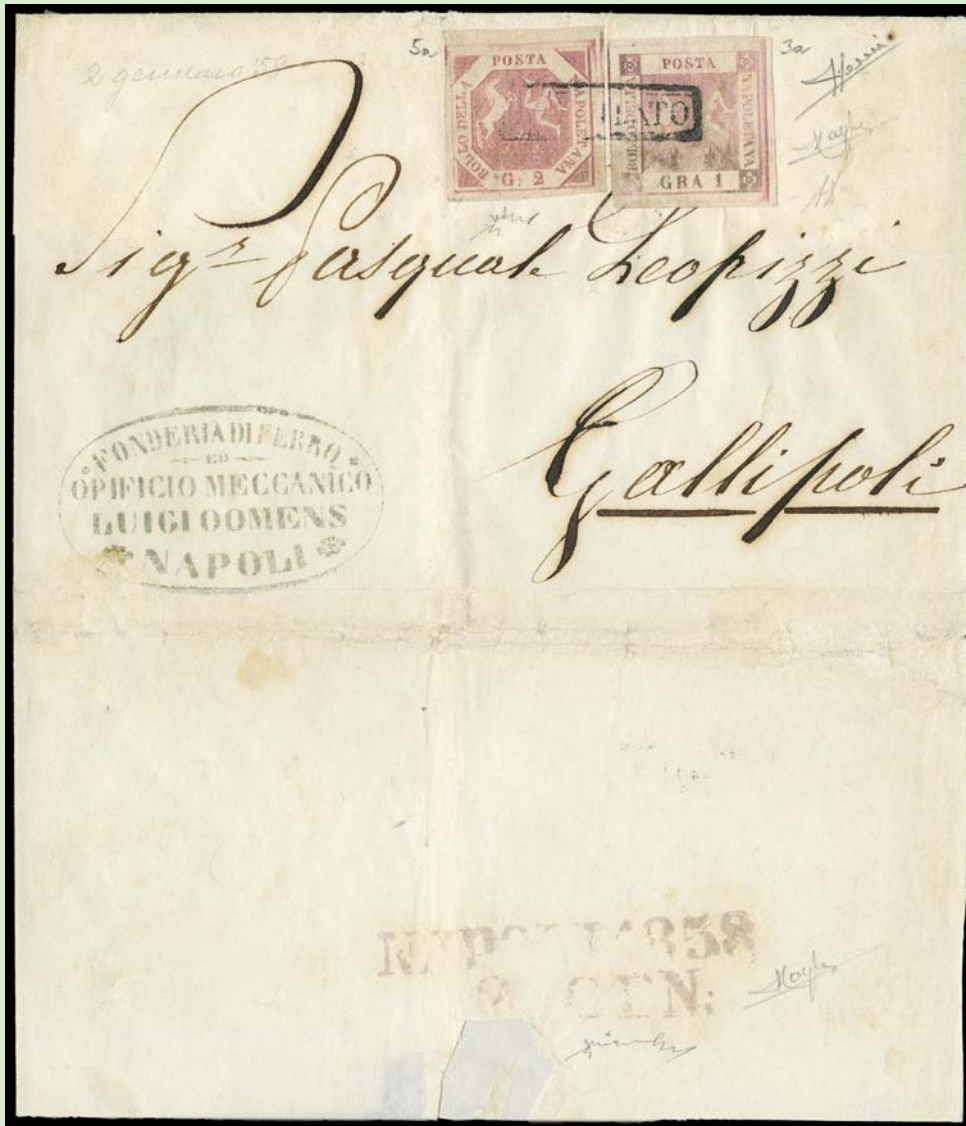 2 gennaio 58
5a
3a
POSTA
BOLLO DELLA
NAPOLETANA
G. 2
POSTA
BOLLO DELLA
NAPOLETANA
GRA 1
Sigr Pasquale Leopizzi
Gallipoli
FONDERIA DI FERRO
ED
OPIFICIO MECCANICO
LUIGI OOMENS
NAPOLI
1858
GEN.